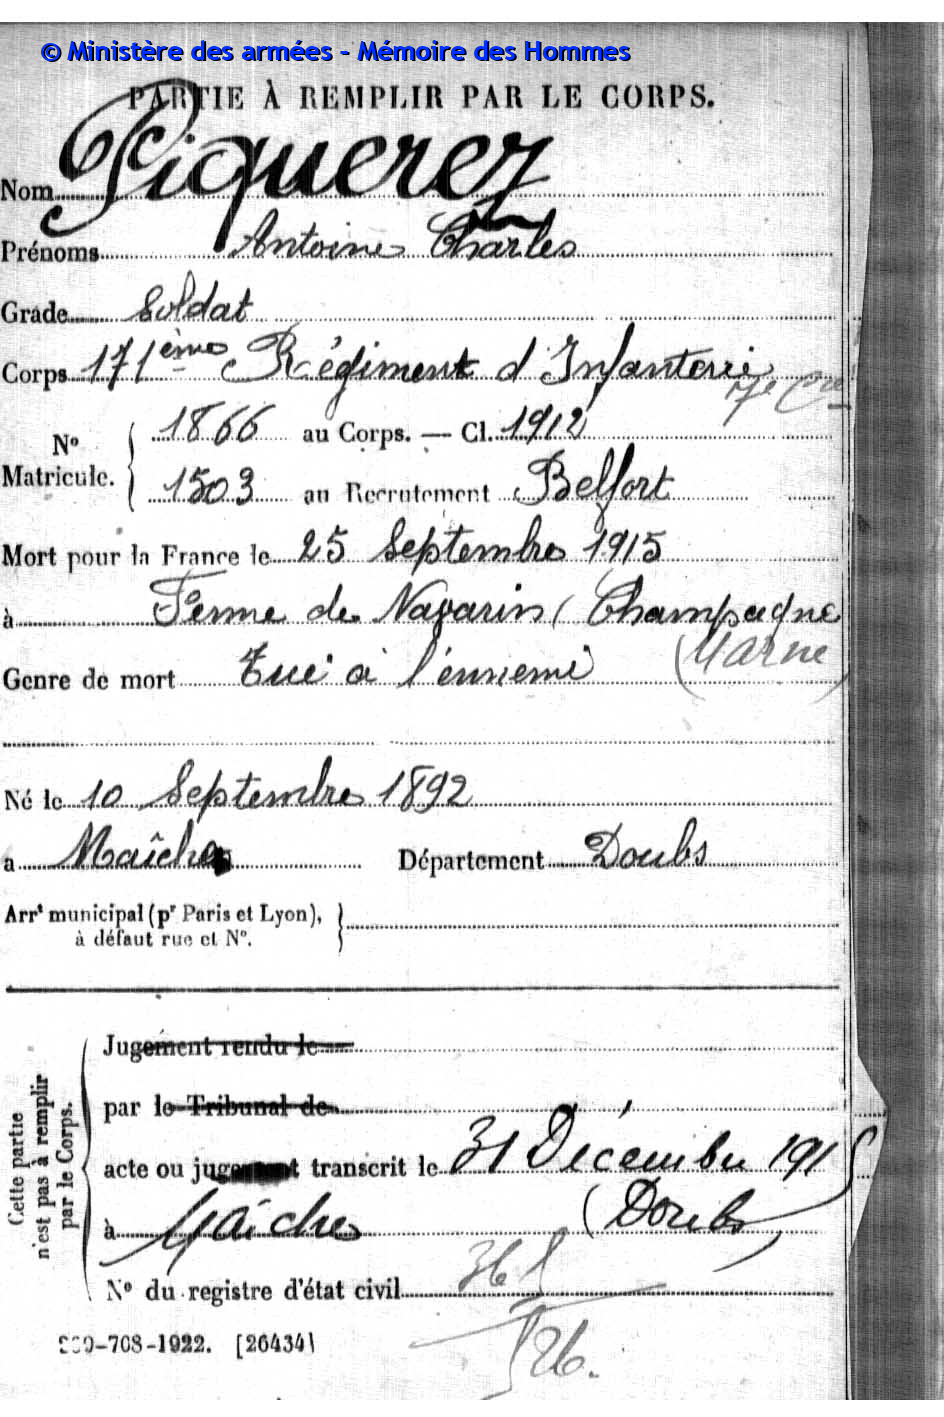 © Ministère des armées - Mémoire des Hommes
PARTIE À REMPLIR PAR LE CORPS.
Nom Piquerez
Prénoms Antoine Charles
Grade Soldat
Corps 171ème Régiment d'Infanterie
7e Cie
N° Matricule. { 1866 au Corps. — Cl. 1912
1503 au Recrutement Belfort
Mort pour la France le 25 Septembre 1915
à Ferme de Navarin (Champagne
(Marne)
Genre de mort Tué à l'ennemi
Né le 10 Septembre 1892
à Maîche Département Doubs
Arrt municipal (pr Paris et Lyon),
à défaut rue et N°.
Cette partie
n'est pas à remplir
par le Corps.
Jugement rendu le
par le Tribunal de
acte ou jugement transcrit le 31 Décembre 1915
à Maîche (Doubs)
N° du registre d'état civil
-708-1922. [26434]